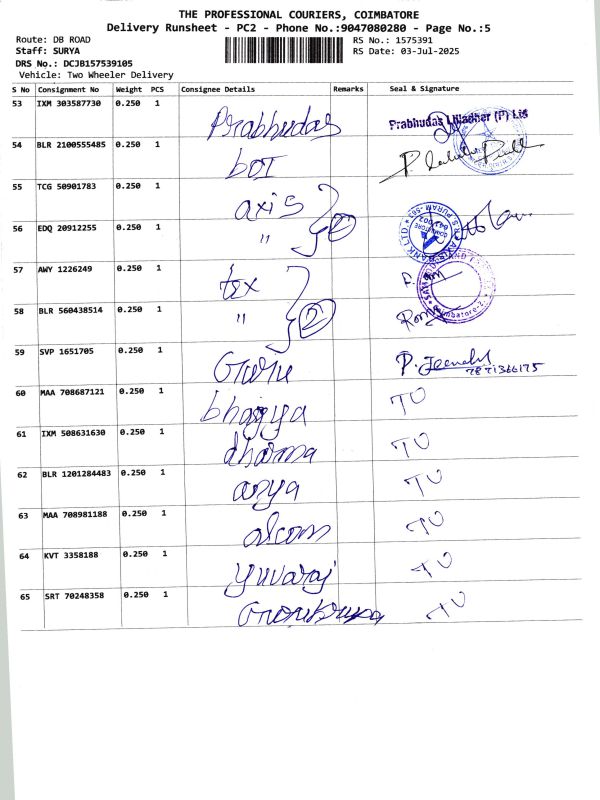 THE PROFESSIONAL COURIERS, COIMBATORE
Delivery Runsheet - PC2 - Phone No.:9047080280 - Page No.:5
Route: DB ROAD RS No.: 1575391
Staff: SURYA RS Date: 03-Jul-2025
DRS No.: DCJB157539105
Vehicle: Two Wheeler Delivery
S No Consignment No Weight PCS Consignee Details Remarks Seal & Signature
53 IXM 303587730 0.250 1 Prabhudas Prabhudas Lilladher (P) Ltd
54 BLR 2100555485 0.250 1 boI
55 TCG 50901783 0.250 1 axis
56 EDQ 20912255 0.250 1 " 2
57 AWY 1226249 0.250 1 tex
58 BLR 560438514 0.250 1 " 2
59 SVP 1651705 0.250 1 Guru P. 7871366175
60 MAA 708687121 0.250 1 bhagya TU
61 IXM 508631630 0.250 1 dharma TU
62 BLR 1201284483 0.250 1 arya TU
63 MAA 708981188 0.250 1 alcom TU
64 KVT 3358188 0.250 1 yuvaraj TU
65 SRT 70248358 0.250 1 TU